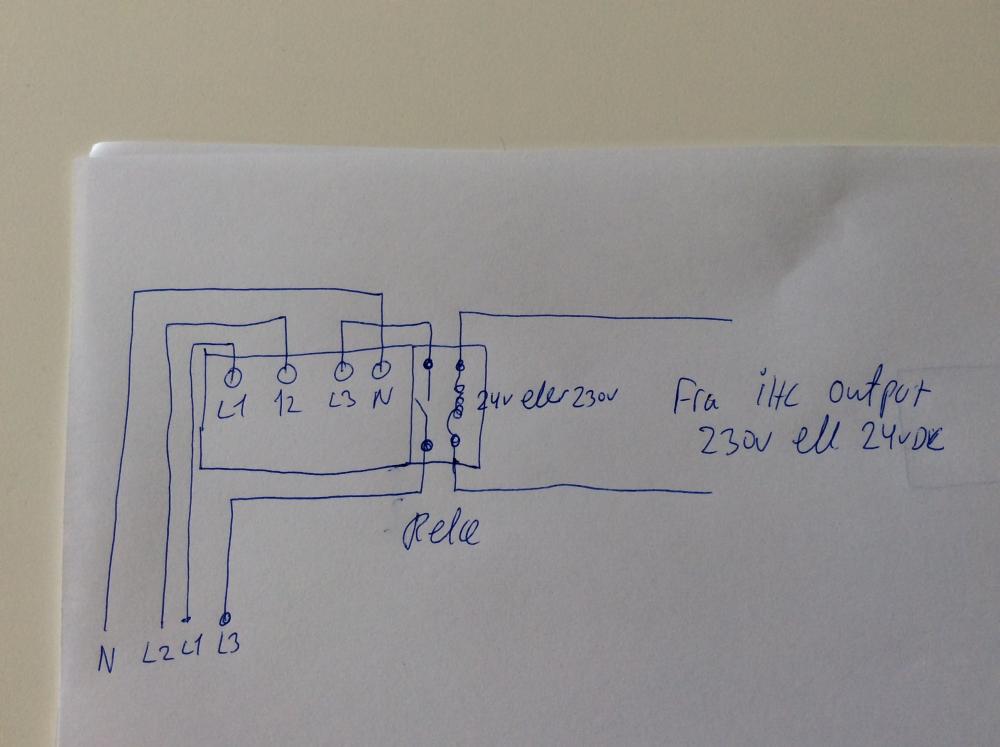 L1 L2 L3 N
24v eller 230v
Fra iHC output
230v ell 24vDC
Relæ
N L2 L1 L3